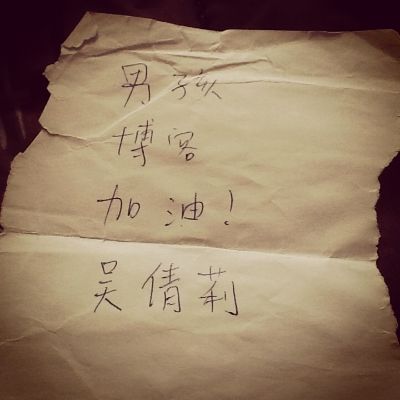 男孩
博客
加油!
吴倩莉